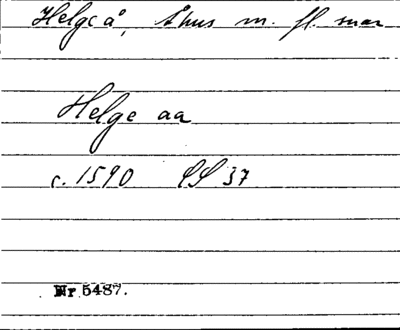 Helgeå, Åhus m. fl. snar
Helge aa
c. 1590 SS 37
Nr 5487.